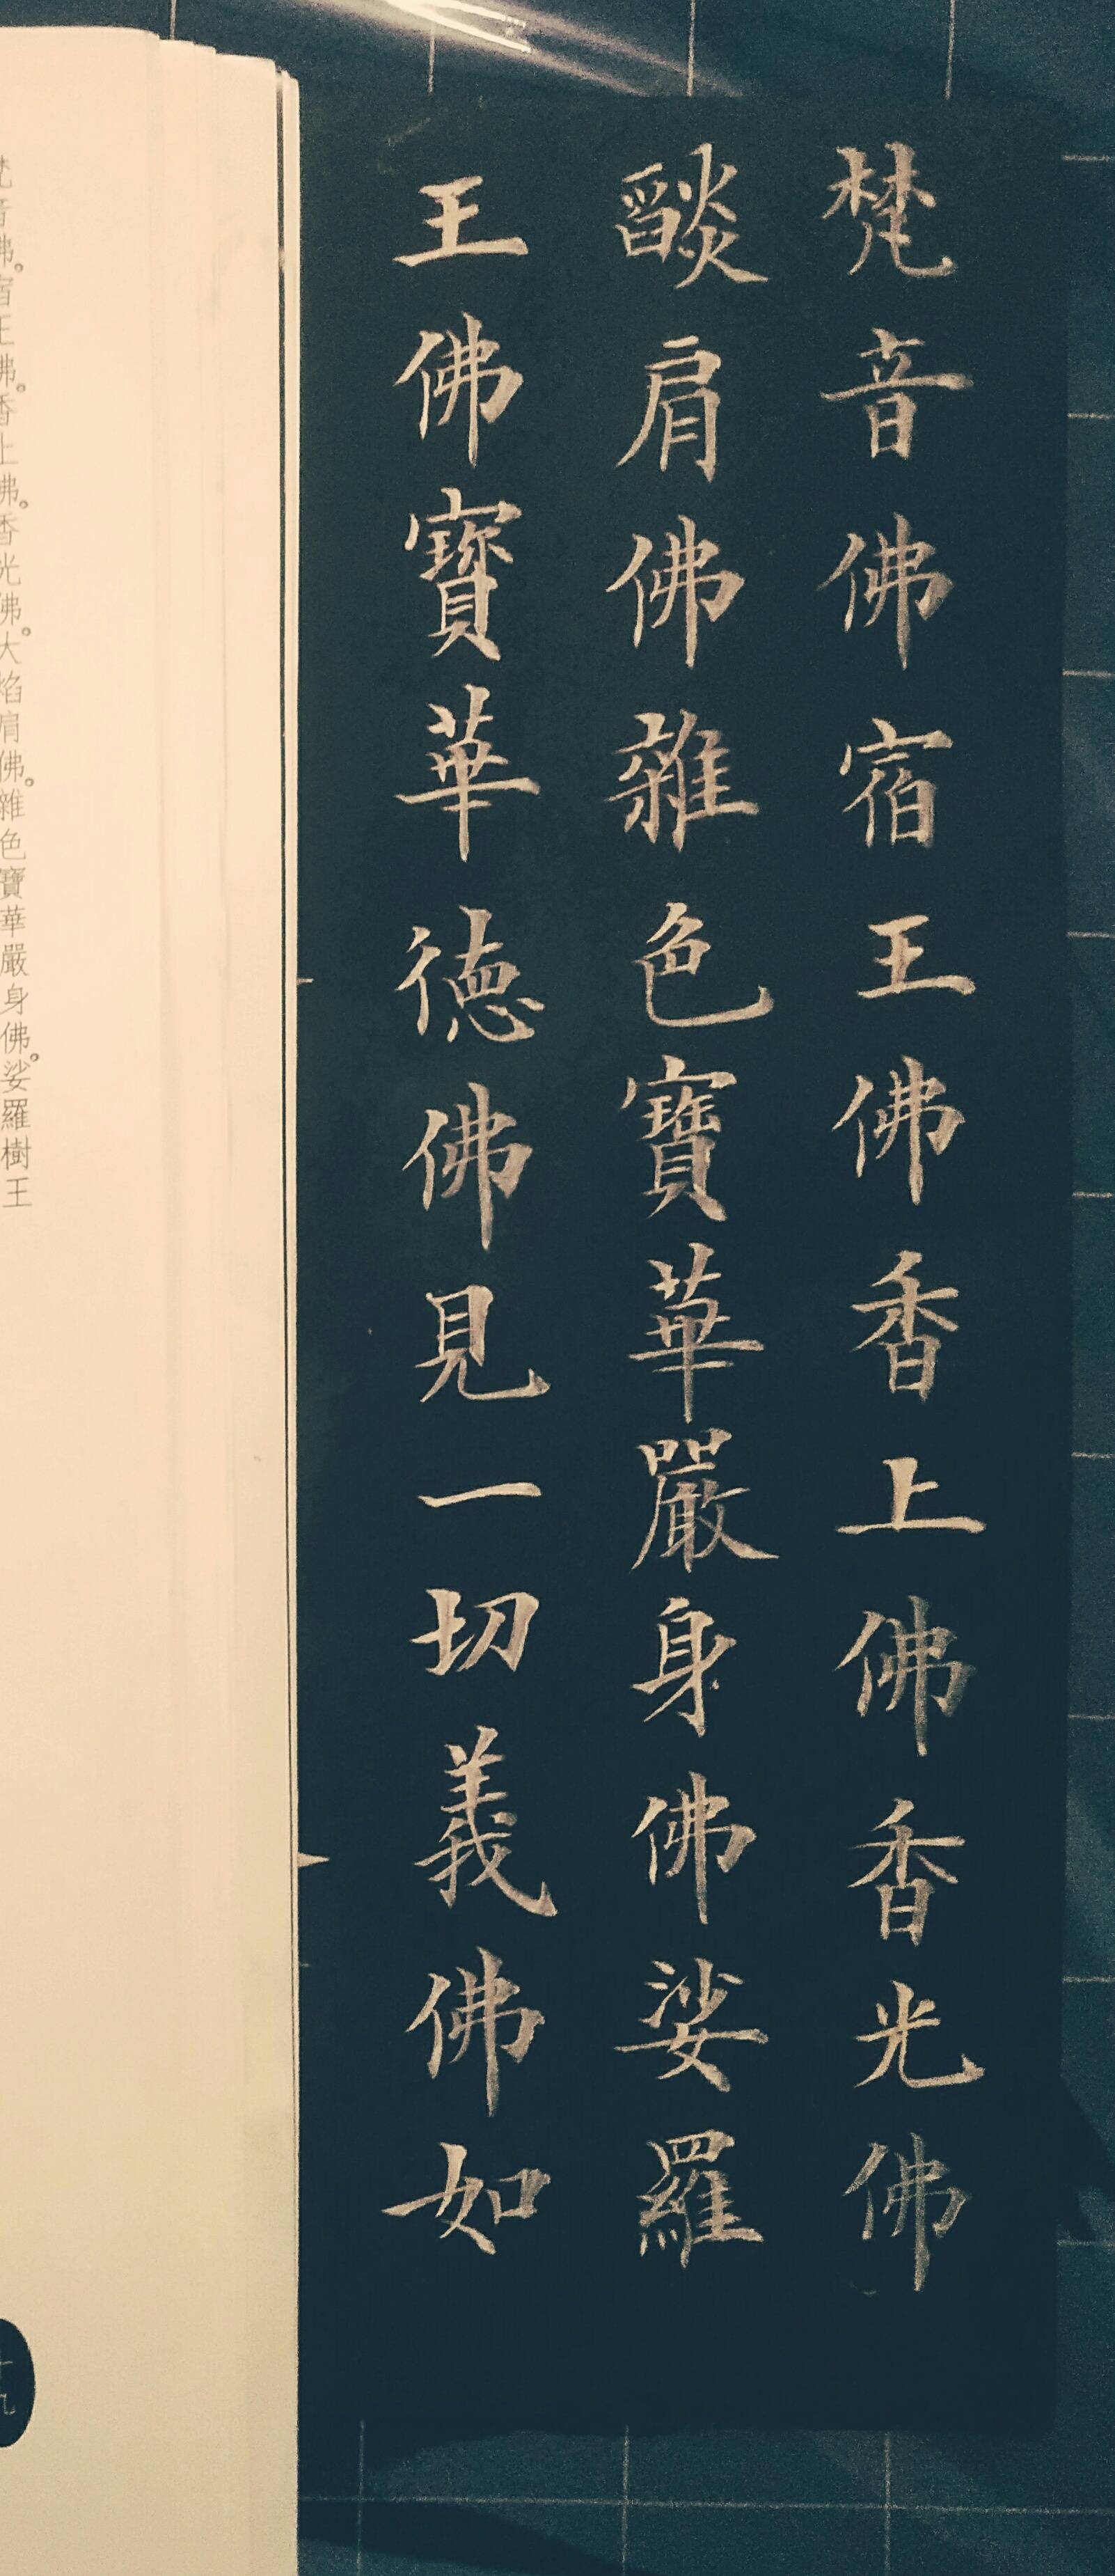 梵音佛宿王佛香上佛香光佛
燄肩佛雜色寶華嚴身佛娑羅
王佛寶華徳佛見一切義佛如
梵音佛。宿王佛。香上佛。香光佛。大焰肩佛。雜色寶華嚴身佛。娑羅樹王